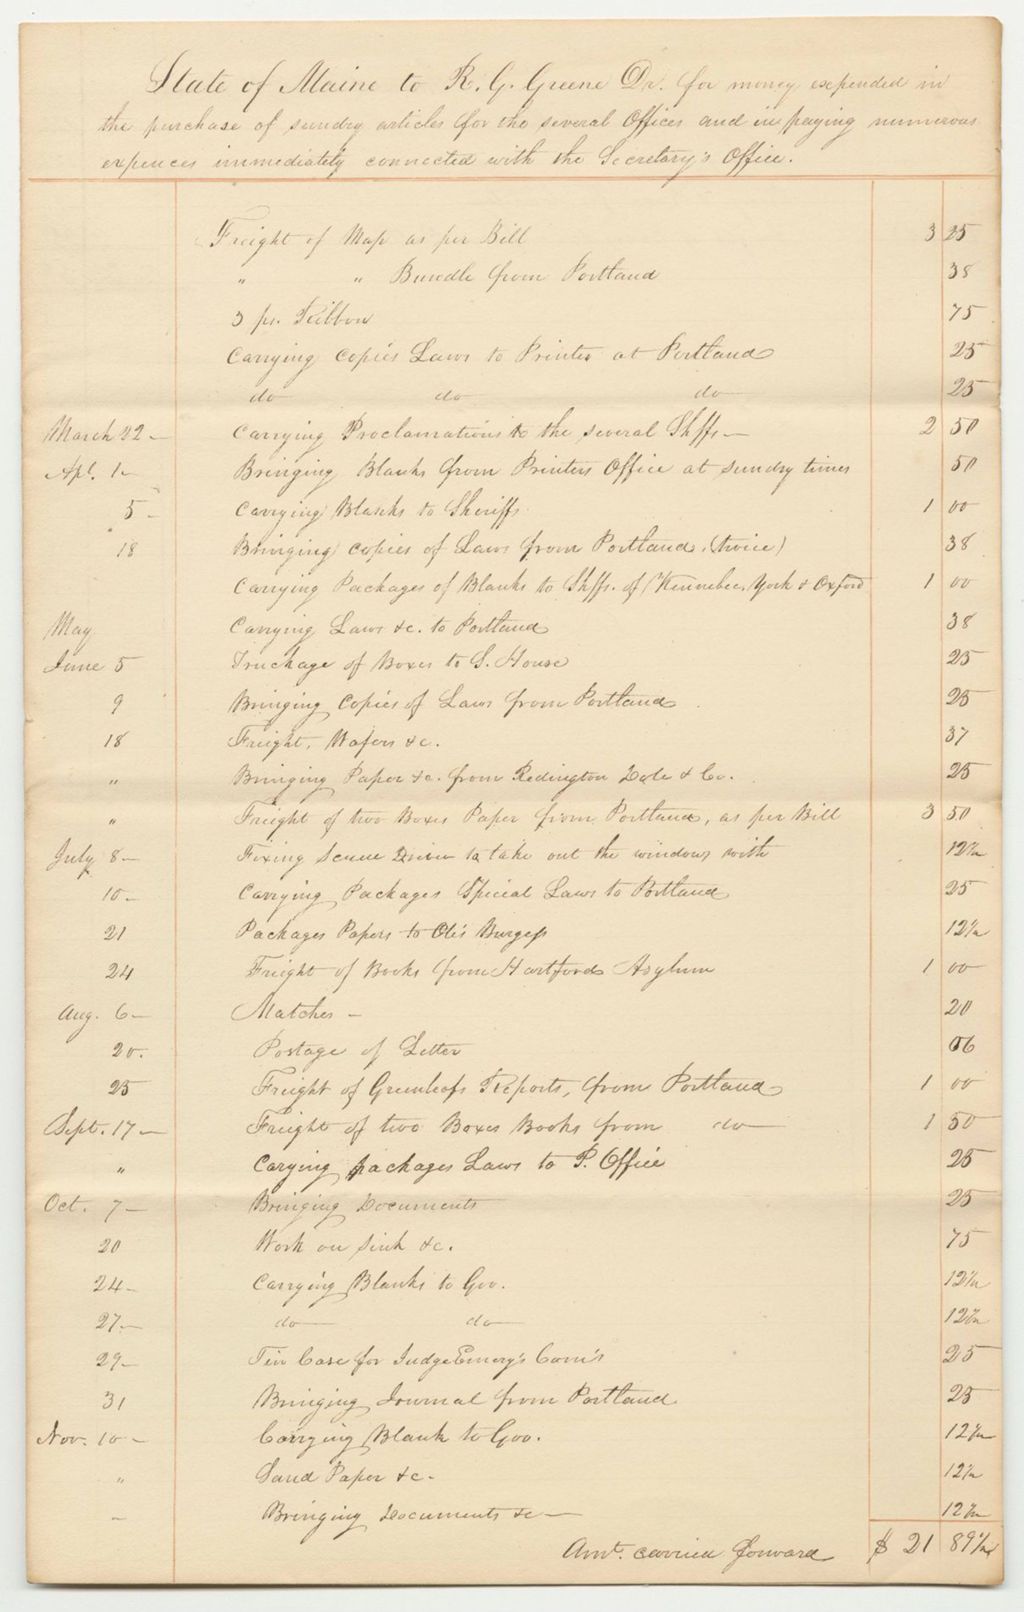 State of Maine to R. G. Greene Dr. for money expended in
the purchase of sundry articles for the several Offices and in paying numerous
expences immediately connected with the Secretary's Office.
Freight of Map as per Bill 3 25
" " Bundle from Portland 38
3 ps. Ribbon 75
Carrying copies Laws to Printer at Portland 25
do do do 25
March 22 - Carrying Proclamations to the several Shffs - 2 50
Apl. 1 - Bringing Blanks from Printers Office at sundry times 50
5 - Carrying Blanks to Sheriffs 1 00
18 Bringing copies of Laws from Portland (twice) 38
Carrying Packages of Blanks to Shffs. of Kennebec, York & Oxford 1 00
May Carrying Laws &c. to Portland 38
June 5 Truckage of Boxes to S. House 25
9 Bringing Copies of Laws from Portland 25
18 Freight, Wafers &c. 37
" Bringing Paper &c. from Redington & Co. 25
" Freight of two Boxes Paper from Portland, as per Bill 3 50
July 8 - Fixing Screw Driver to take out the windows with 12 1/2
10 - Carrying Packages Special Laws to Portland 25
21 Packages Papers to Otis Burgess 12 1/2
24 Freight of Books from Hartford Asylum 1 00
Aug. 6 - Matches - 20
20. Postage of Letter 06
25 Freight of Greenleafs Reports, from Portland 1 00
Sept. 17 - Freight of two Boxes Books from do 1 50
" Carying packages Laws to P. Office 25
Oct. 7 - Bringing Documents 25
20 Work on sink &c. 75
24 - Carrying Blanks to Gov. 12 1/2
27 - do do 12 1/2
29 - Tin Case for Judge Emery's Com's 25
31 Bringing Journal from Portland 25
Nov. 10 - Carrying Blank to Gov. 12 1/2
" Sand Paper &c - 12 1/2
- Bringing Documents &c - 12 1/2
Amt. carried forward $ 21 89 1/2